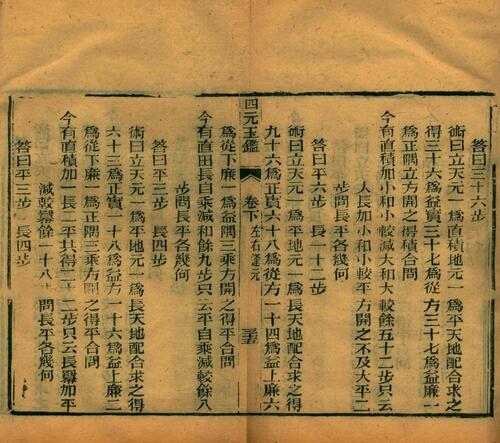 答曰三十六步
術曰立天元一爲直積地元一爲平天地配合求之
得三十六爲益實三十七爲從方三十七爲益廉一
爲正隅立方開之得積合問
今有直積加小和小較減大和大較餘五十二步只云
人長加小和小較平方開之不及大平二
步問長平各幾何
答曰平六步 長一十二步
術曰立天元一爲平地元一爲長天地配合求之得
九十六爲正實六十八爲從方一十四爲益上廉六
爲從下廉一爲益隅三乘方開之得平合問
今有直田長自乘減和餘九步只云平自乘減較餘八
步問長平各幾何
四元玉鑑 卷下 左右逢元 三五
答曰平三步 長四步
術曰立天元一爲平地元一爲長天地配合求之得
六十三爲正實一十八爲益方一十六爲益上廉二
爲從下廉一爲正隅三乘方開之得平合問
今有直積加一長二平共得二十二步只云長冪加平
減較冪餘一十八步問長平各幾何
答曰平三步 長四步